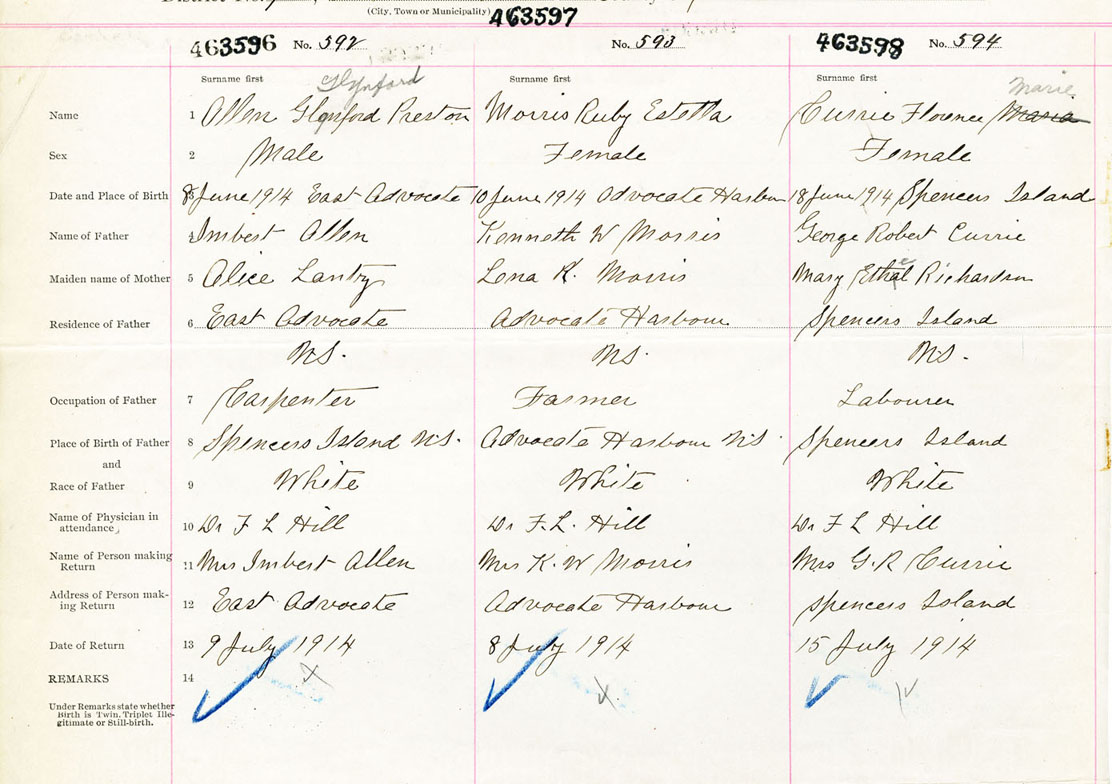 (City, Town or Municipality)
463597
463596 No. 592
No. 593
463598 No. 594
Surname first Glynford
Surname first
Surname first Marie
Name 1 Allen Glynford Preston Morris Ruby Estella Currie Florence Maria
Sex 2 Male Female Female
Date and Place of Birth 3 8 June 1914 East Advocate 10 June 1914 Advocate Harbour 18 June 1914 Spencers Island
Name of Father 4 Imbert Allen Kenneth W Morris George Robert Currie
Maiden name of Mother 5 Alice Lantry Lena K. Morris Mary Ethel Richardson
Residence of Father 6 East Advocate Advocate Harbour Spencers Island
N.S. N.S. N.S.
Occupation of Father 7 Carpenter Farmer Labourer
Place of Birth of Father 8 Spencers Island N.S. Advocate Harbour N.S. Spencers Island
and
Race of Father 9 White White White
Name of Physician in
attendance, 10 Dr F L Hill Dr F. L. Hill Dr F L Hill
Name of Person making
Return 11 Mrs Imbert Allen Mrs K. W Morris Mrs G. R Currie
Address of Person mak-
ing Return 12 East Advocate Advocate Harbour Spencers Island
Date of Return 13 9 July 1914 8 July 1914 15 July 1914
REMARKS 14
Under Remarks state whether
Birth is Twin, Triplet Ille-
gitimate or Still-birth.